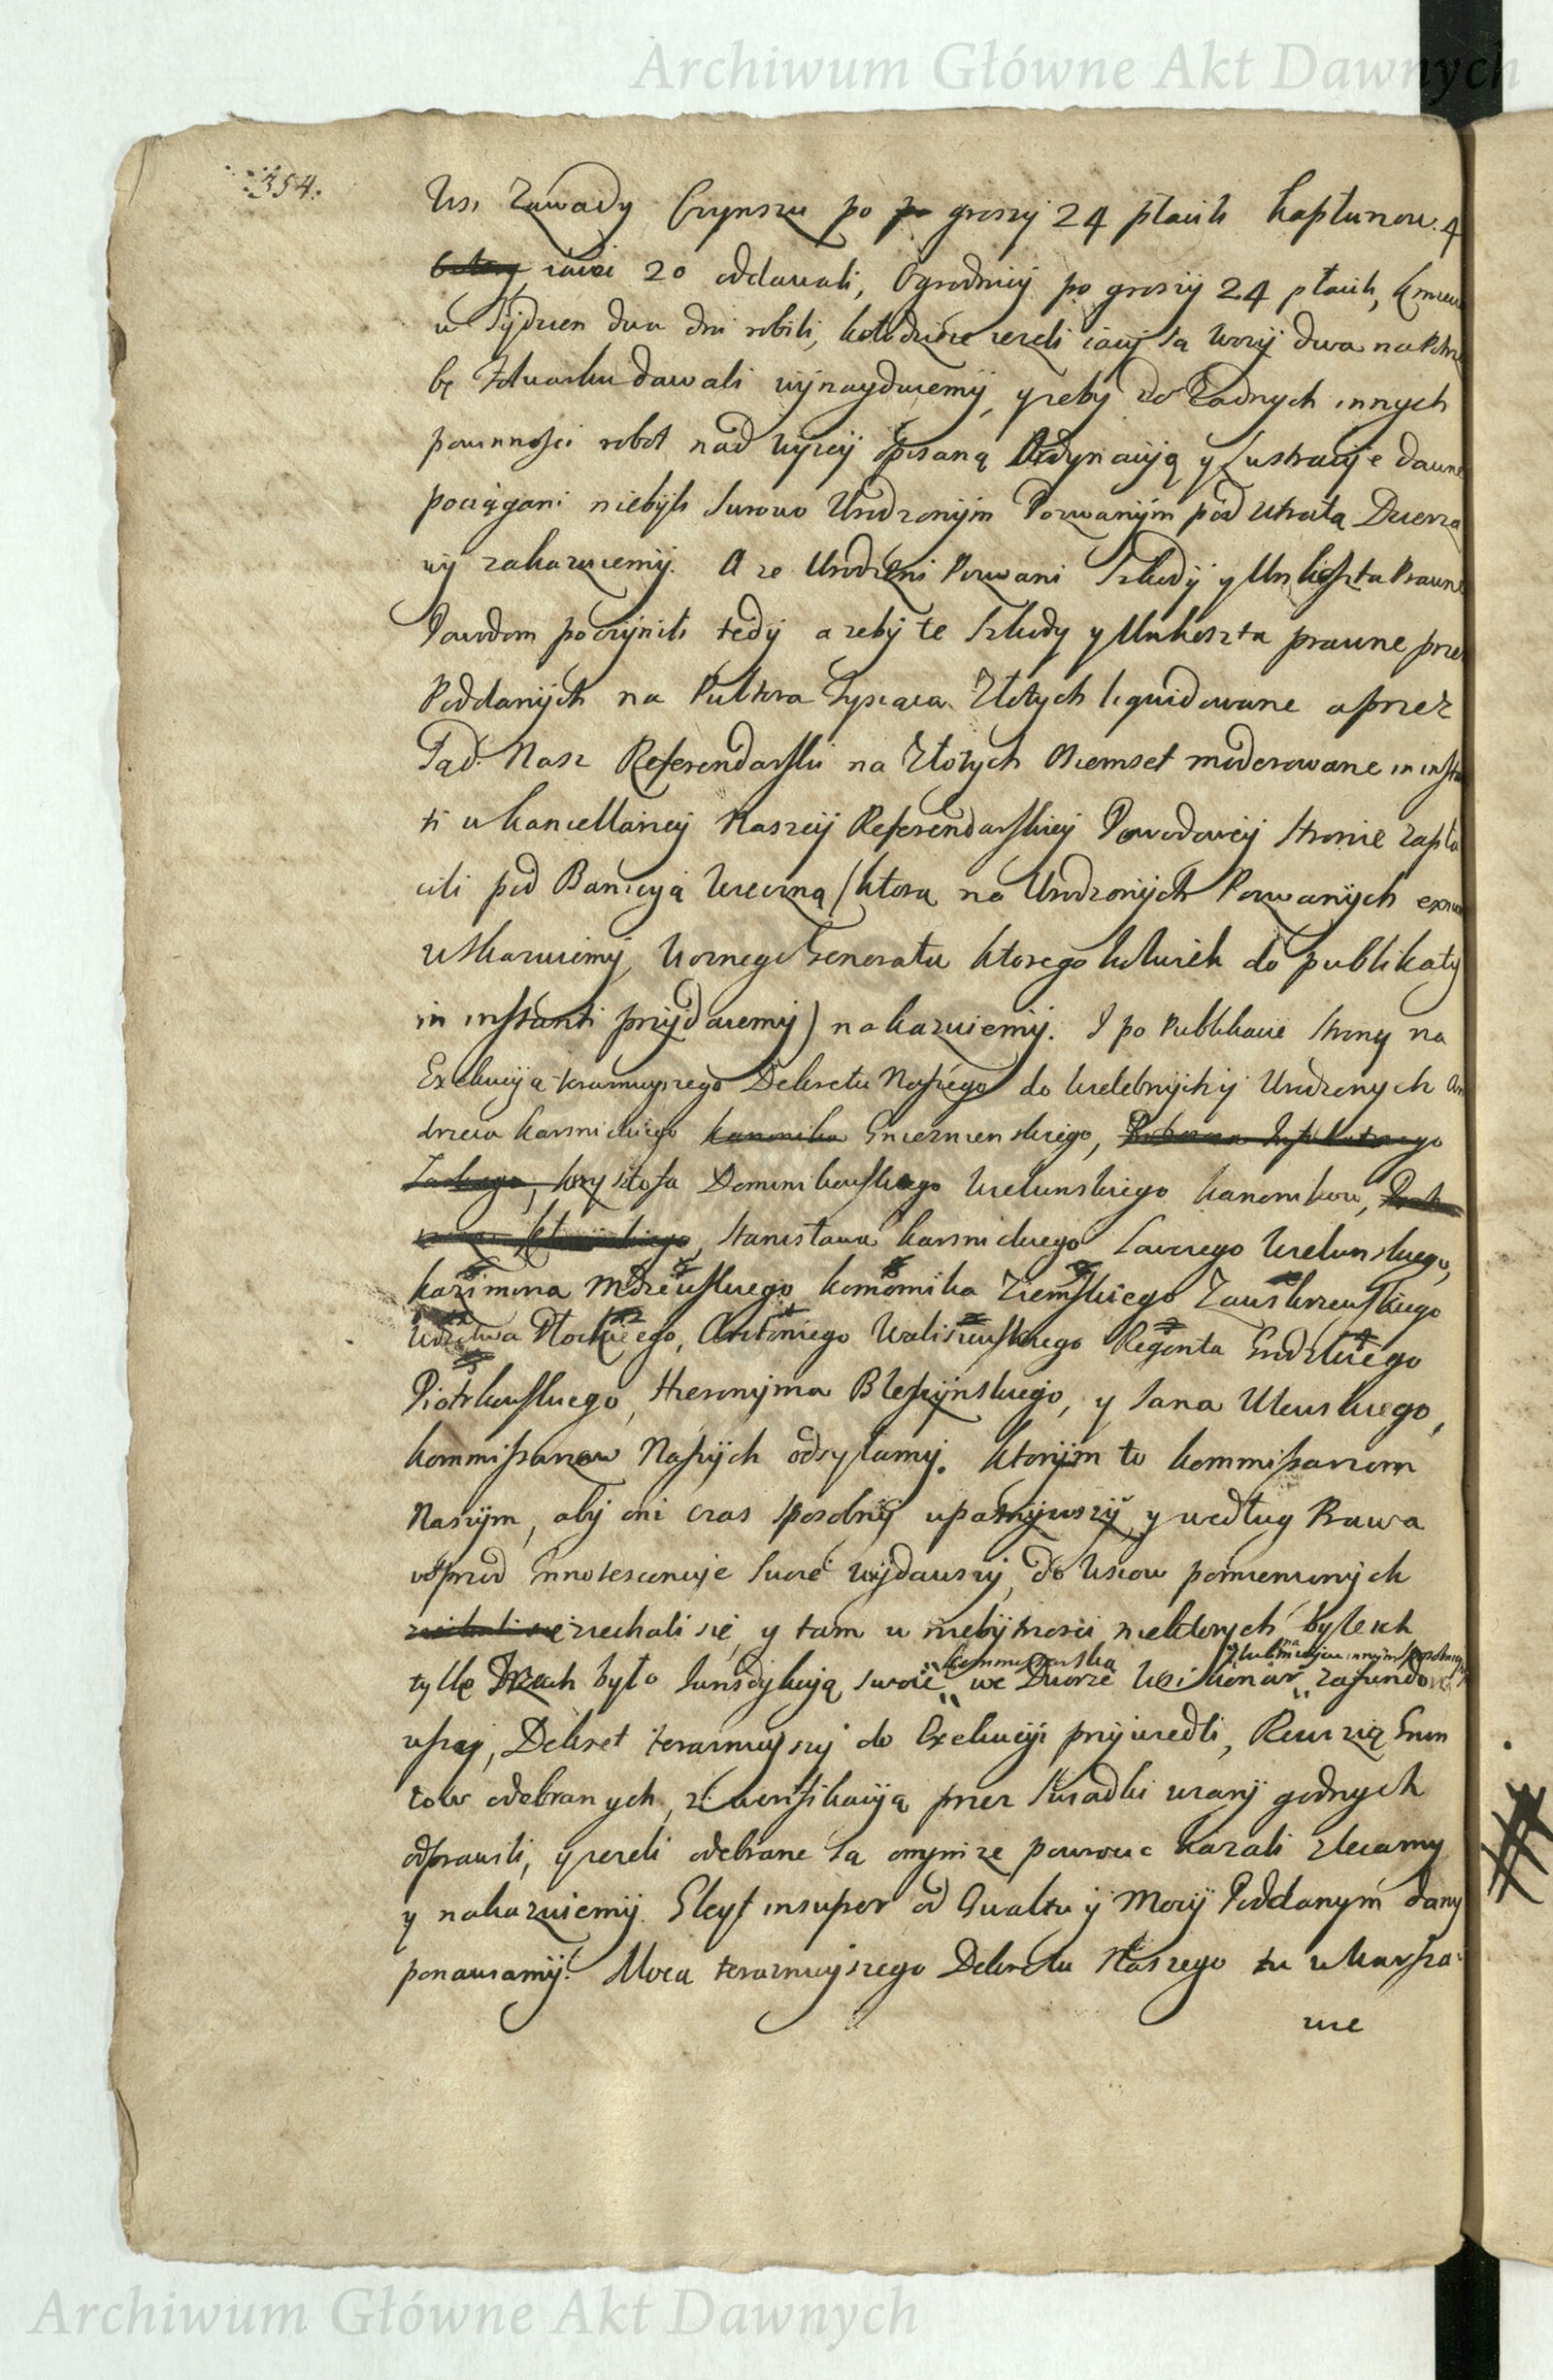 Archiwum Główne Akt Dawnych
354.
Wsi Zawady Czynszu po groszy 24 płacili kapłunow 4
iaiec 20 oddawali, Ogrodnicy po groszy 24 płacili, kmiecie
w Tydzien dwa dni robili, kołodzieie iezeli iacy są wozy dwa na Potrze
bę Folwarku dawali wynayduiemy, y zeby do Zadnych innych
powinnosci robot nad wyzey opisaną Ordynacyą y Lustracye dawne
pociągani niebyli surowo Urodzonym Pozwanym pod utratą Dzierza
wy zakazuiemy. A ze Urodzeni Pozwani Szkody y Unkoszta Prawne
Powodom poczynili tedy azeby te Szkody y Unkoszta prawne przez
Poddanych na Pułtora Tysiąca Złotych liquidowane a przez
Sąd Nasz Referendarski na Złotych Osiemset moderowane in instan
ti w kancellaryey Naszey Referendarskiey Powodowey stronie zapła
cili pod Banicyą wieczną (ktorą na Urodzonych Pozwanych
wskazuiemy, Woznego Generała ktorego kolwiek do publikaty
in instanti przydaiemy) nakazuiemy. I po Publikacie strony na
Exekucyą teraznieyszego Dekretu Naszego do Wielebnych y Urodzonych An
drzeia karsnickiego kanonika Gnieznienskiego,
krysztofa Dominikowskiego Wielunskiego kanonikow,
Stanisława karsnickiego Łowczego Wielunskiego,
kazimierza komornika Ziemskiego Zawskrzenskiego
Wdztwa Płockiego, Antoniego Waliszewskiego Regenta Grodzkiego
Piotrkowskiego, Hieronyma Bleszynskiego, y Jana
kommissarzow Naszych odsyłamy. ktorym to kommissarzom
Naszym, aby oni czas sposobny upatrzywszy y według Prawa
wprzod Innotescencye swoie wydawszy, do Wsiow pomienionych
ziechali się, y tam w niebytnosci niektorych, byle ich
kommissarską
tylko Trzech było Jurisdykcyą swoie we Dworze Wsi zafundo
wszy, Dekret teraznieyszy do Exekucyi przywiedli, Rewizią Grun
tow odebranych, z werifikacyą przez Swiadki wiary godnych
odprawili, y iezeli odebrane są onymze powrocic kazali zlecamy
y nakazuiemy. Gleyt insuper od Gwałtu y Mocy Poddanym dany
ponawiamy. Mocą teraznieyszego Dekretu Naszego tu w Warsza-
wie
Archiwum Główne Akt Dawnych